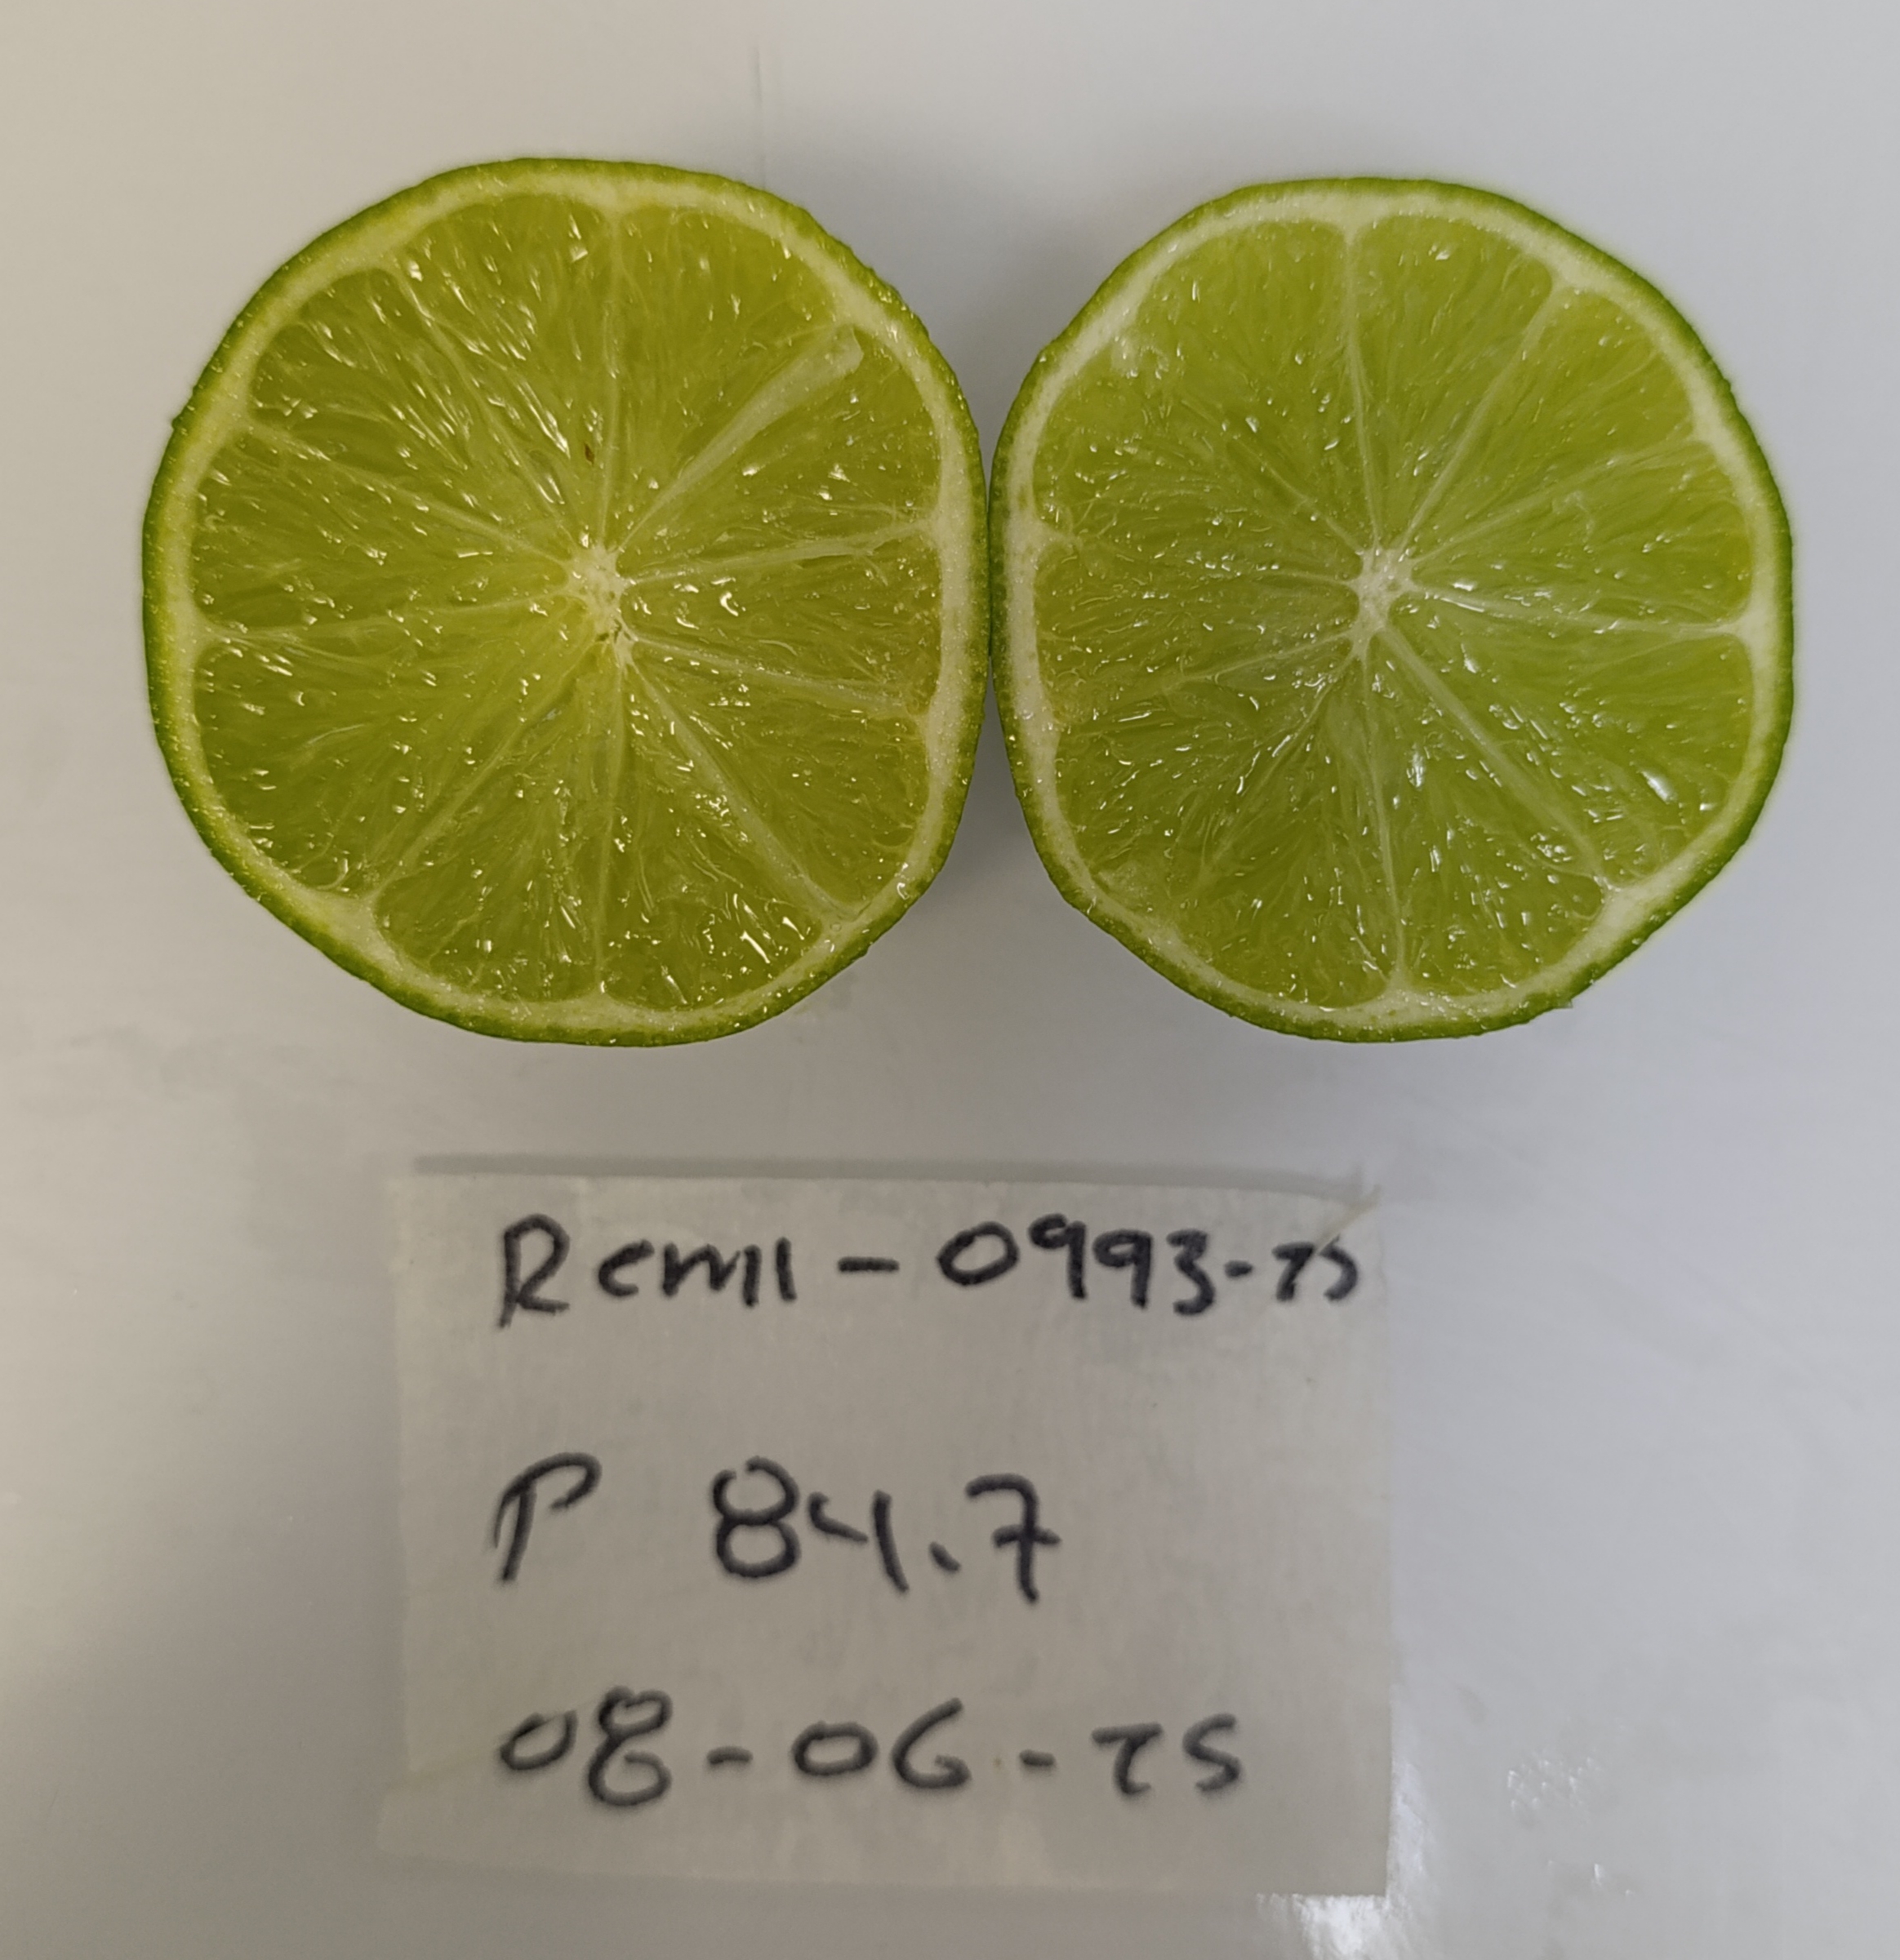 Remi-0993-25
P 84.7
08-06-25